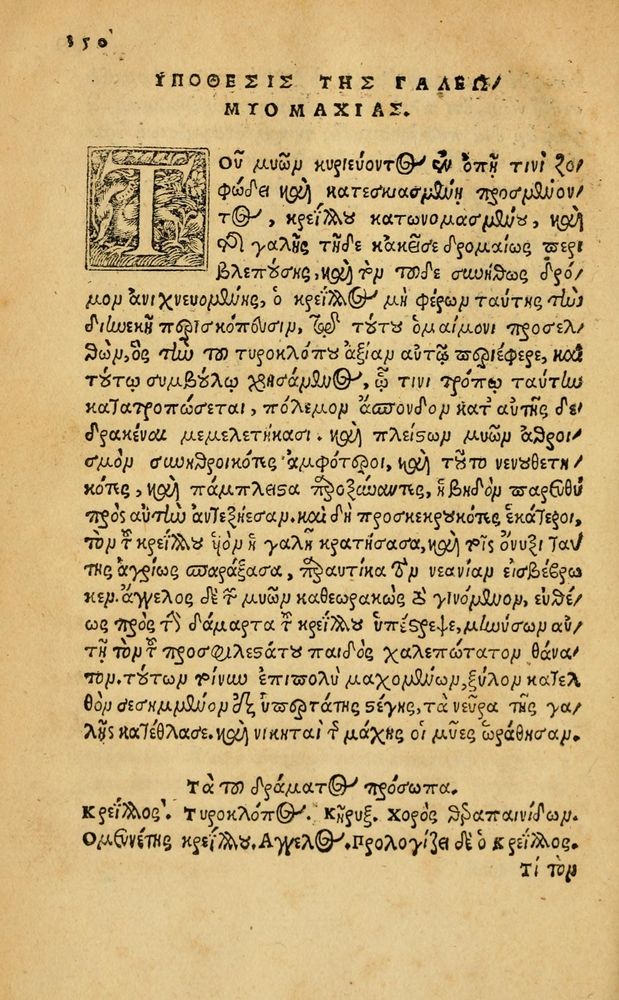 350
ΥΠΟΘΕΣΙΣ ΤΗΣ ΓΑΛΕΩ/
ΜΥΟΜΑΧΙΑΣ.
ΤΟῦ μυῶν κυριεύοντος ἐν ὀπῇ τινὶ ζο/
φώδει καὶ κατεσκιασμένῃ προσμένον/
τος, κρεΐλλου κατωνομασμένου, καὶ
γαλῆς τῇδε κἀκεῖσε δρομαίως περι
βλεπούσης, καὶ τὸν τοῦδε συνήθως δρό/
μον ἀνιχνευομένης, ὁ κρεΐλλος μὴ φέρων ταύτης τὴν
διηνεκῆ περισκόπευσιν, τούτου ὁμαίμονι προσελ/
θὼν, ὃς τὴν τοῦ τυροκλόπου ἀξίαν αὐτῷ περιέφερε, καὶ
τούτῳ συμβούλῳ χρησάμενος, ᾧ τινι τρόπῳ ταύτην
κατατροπώσεται, πόλεμον ἄσπονδον κατ' αὐτῆς δε/
δρακέναι μεμελετήκασι. καὶ πλείστων μυῶν ἀθροι/
σμὸν συνηθροικότες ἀμφότεροι, καὶ τοῦτο νενουθετη/
κότες, καὶ πάμπλειστα προξενοῦντες, ἡβηδὸν παρευθὺ
πρὸς αὐτὴν ἀντεξῄεσαν. καὶ δὴ προσκεκρουκότες ἑκάτεροι,
τὸν τοῦ κρεΐλλου υἱὸν ἡ γαλῆ κρατήσασα, καὶ τοῖς ὄνυξι ταύ/
της ἀγρίως σπαράξασα, παραυτίκα τὸν νεανίαν εἰσβέβρω
κεν. ἄγγελος δὲ τῶν μυῶν καθεωρακὼς τὸ γινόμενον, εὐθέ/
ως πρὸς τὴν δάμαρτα τοῦ κρεΐλλου ὑπέστρεψε, μηνύσων αὐ/
τῇ τὸν τοῦ προσφιλεστάτου παιδὸς χαλεπώτατον θάνα/
τον. τούτων γοῦν ἐπιπολὺ μαχομένων, ξύλον κατελ
θὸν σεσημμένον ἐξ ὑπερτάτης στέγης, τὰ νεῦρα τῆς γα/
λῆς κατέθλασε. καὶ νικηταὶ τῆς μάχης οἱ μῦες ὡράθησαν.
Τὰ τοῦ δράματος πρόσωπα.
Κρεΐλλος. Τυροκλόπος. Κῆρυξ. Χορὸς θεραπαινίδων.
Ὁμευνέτης κρεΐλλου. Ἄγγελος. Προλογίζει δὲ ὁ Κρεΐλλος.
Τί τὸν